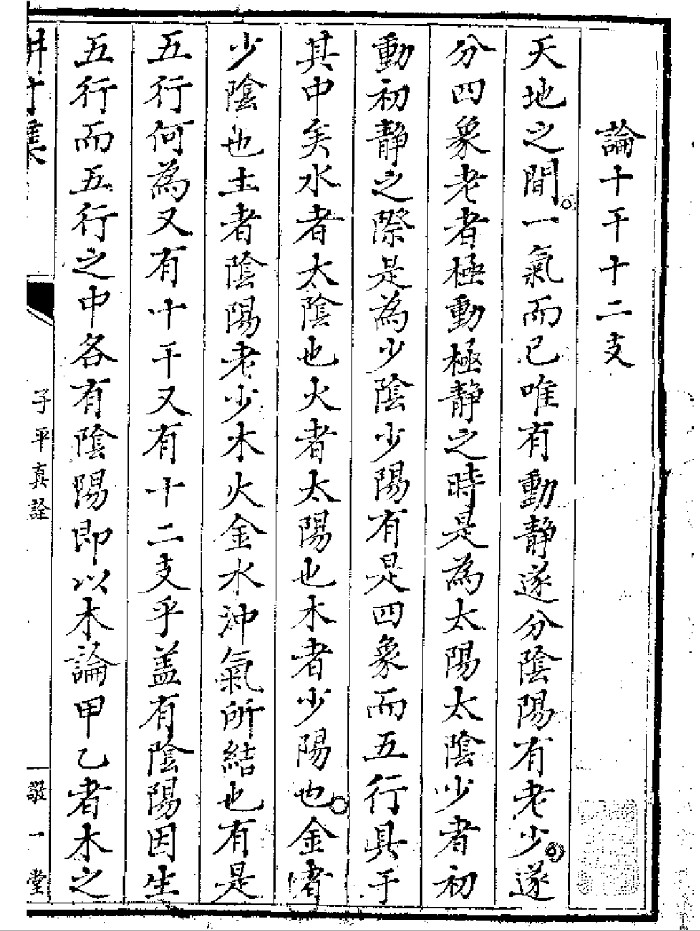 論十干十二支
天地之間一氣而已唯有動靜遂分陰陽有老少遂
分四象老者極動極靜之時是為太陽太陰少者初
動初靜之際是為少陰少陽有是四象而五行具于
其中矣水者太陰也火者太陽也木者少陽也金者
少陰也土者陰陽老少木火金水沖氣所結也有是
五行何為又有十干又有十二支乎盖有陰陽因生
五行而五行之中各有陰陽即以木論甲乙者木之
子平真詮
一
敬一堂